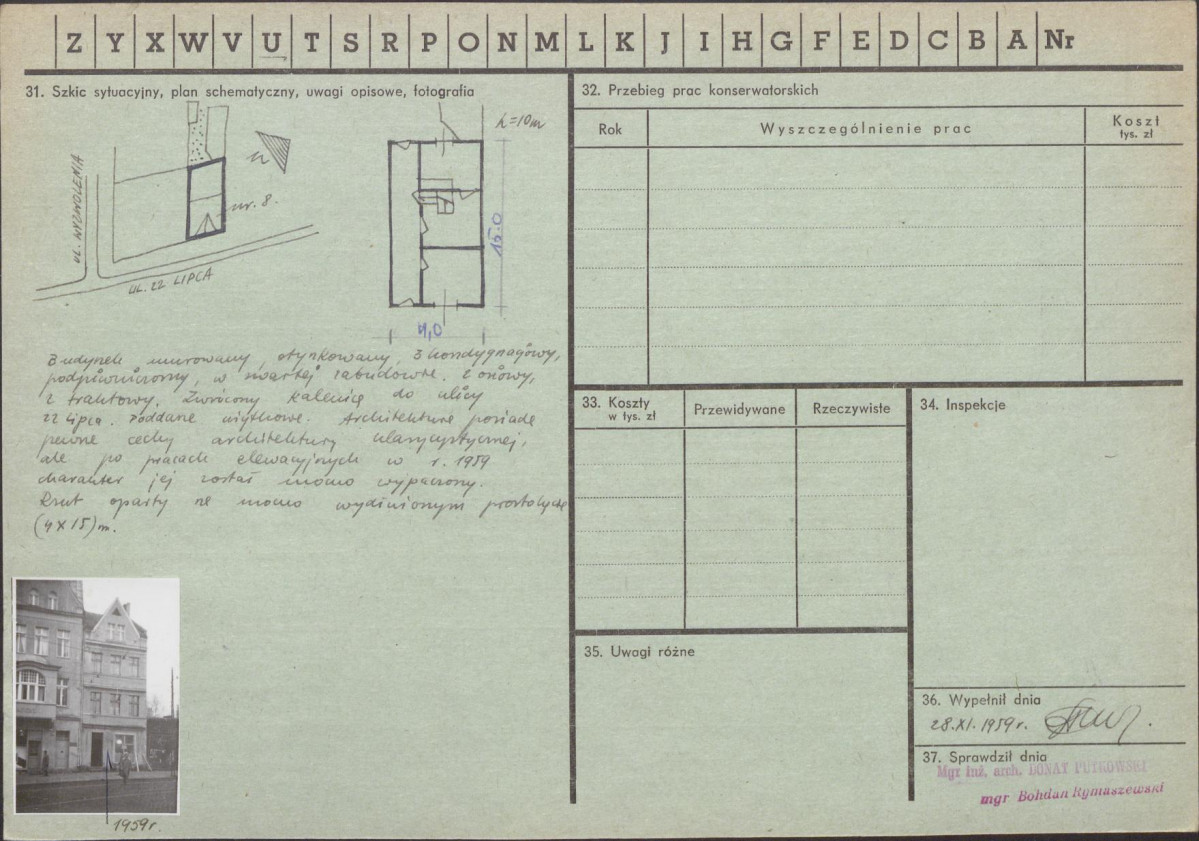 Z Y X W V U T S R P O N M L K J I H G F E D C B A Nr
31. Szkic sytuacyjny, plan schematyczny, uwagi opisowe, fotografia
UL. WYZWOLENIA
UL. 22 LIPCA
nr. 8.
N
h=10m
15.0
4,0
Budynek murowany, otynkowany, 3 kondygnacjowy,
podpiwniczony, w zwartej zabudowie. 2 osiowy,
2 traktowy. Zwrócony kalenicą do ulicy
22 Lipca. Poddasze użytkowe. Architektura posiada
pewne cechy architektury klasycystycznej,
ale po pracach elewacyjnych w r. 1959
charakter jej został mocno wypaczony.
Rzut oparty na mocno wydłużonym prostokącie
(4 x 15) m.
1959r.
32. Przebieg prac konserwatorskich
Rok
Wyszczególnienie prac
Koszt
tys. zł
33. Koszty
w tys. zł
Przewidywane
Rzeczywiste
34. Inspekcje
35. Uwagi różne
36. Wypełnił dnia
28.XI.1959r.
37. Sprawdził dnia
Mgr inż. arch. DONAT PUTKOWSKI
mgr Bohdan Rymaszewski